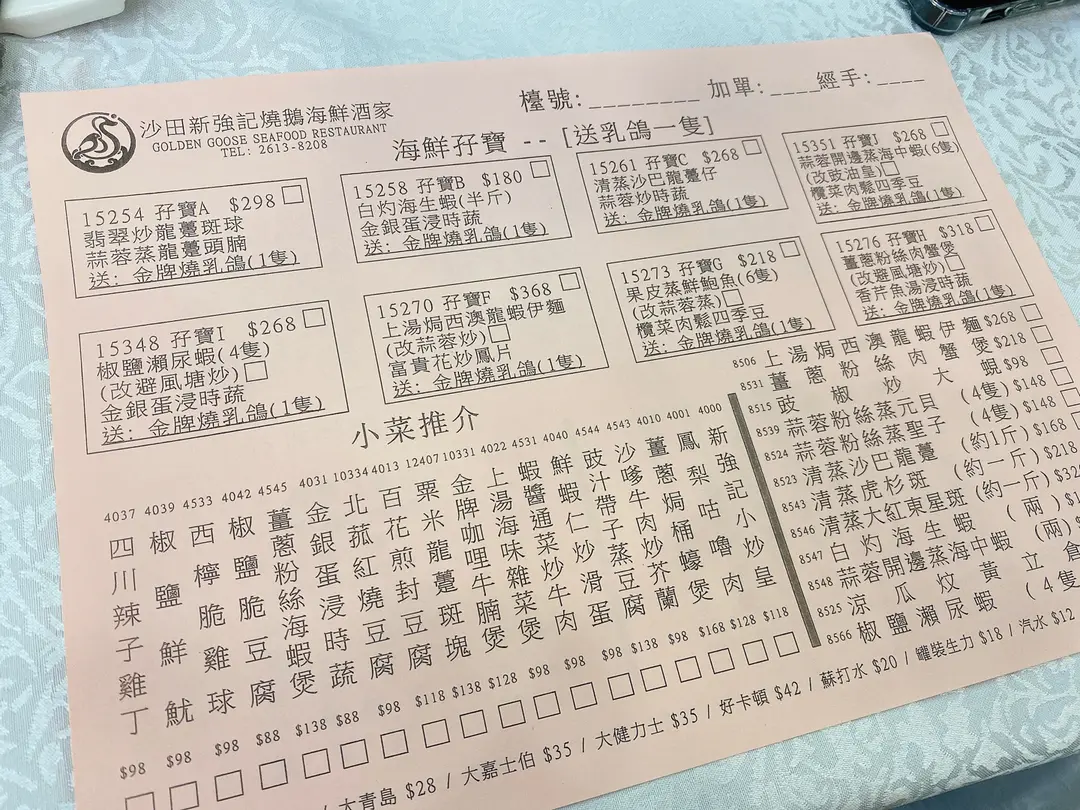 沙田新強記燒鵝海鮮酒家
GOLDEN GOOSE SEAFOOD RESTAURANT
TEL: 2613-8208
檯號:________ 加單:____ 經手:____
海鮮孖寶 -- [送乳鴿一隻]
15254 孖寶A $298
翡翠炒龍躉斑球
蒜蓉蒸龍躉頭腩
送: 金牌燒乳鴿(1隻)
15258 孖寶B $180
白灼海生蝦(半斤)
金銀蛋浸時蔬
送: 金牌燒乳鴿(1隻)
15261 孖寶C $268
清蒸沙巴龍躉仔
蒜蓉炒時蔬
送: 金牌燒乳鴿(1隻)
15351 孖寶J $268
蒜蓉開邊蒸海中蝦(6隻)
(改豉油皇)
欖菜肉鬆四季豆
送: 金牌燒乳鴿(1隻)
15348 孖寶I $268
椒鹽瀨尿蝦(4隻)
(改避風塘炒)
金銀蛋浸時蔬
送: 金牌燒乳鴿(1隻)
15270 孖寶F $368
上湯焗西澳龍蝦伊麵
(改蒜蓉炒)
富貴花炒鳳片
送: 金牌燒乳鴿(1隻)
15273 孖寶G $218
果皮蒸鮮鮑魚(6隻)
(改蒜蓉蒸)
欖菜肉鬆四季豆
送: 金牌燒乳鴿(1隻)
15276 孖寶H $318
薑蔥粉絲肉蟹煲
(改避風塘炒)
香芹魚湯浸時蔬
送: 金牌燒乳鴿(1隻)
小菜推介
4037 四川辣子雞丁 $98
4039 椒鹽鮮魷 $98
4533 西檸脆雞球 $98
4042 椒鹽脆豆腐 $88
4545 薑蔥粉絲海蝦煲 $138
4031 金銀蛋浸時蔬 $88
10334 北菰紅燒豆腐 $98
4013 百花煎封豆腐 $118
12407 粟米龍躉斑塊 $138
10331 金牌咖哩牛腩煲 $128
4022 上湯海味雜菜煲 $98
4531 蝦醬通菜炒牛肉 $98
4040 鮮蝦仁炒滑蛋 $98
4544 豉汁帶子蒸豆腐 $138
4543 沙嗲牛肉炒芥蘭 $98
4010 薑蔥焗桶蠔煲 $168
4001 鳳梨咕嚕肉 $128
4000 新強記小炒皇 $118
8506 上湯焗西澳龍蝦伊麵 $268
8531 薑蔥粉絲肉蟹煲 $218
8515 豉椒炒大蜆 $98
8539 蒜蓉粉絲蒸元貝 (4隻) $148
8524 蒜蓉粉絲蒸聖子 (4隻) $148
8523 清蒸沙巴龍躉 (約1斤) $168
8543 清蒸虎杉斑 (約一斤) $218
8546 清蒸大紅東星斑 (約一斤)
8547 白灼海生蝦 (兩)
8548 蒜蓉開邊蒸海中蝦 (兩)
8525 涼瓜炆黃立倉
8566 椒鹽瀨尿蝦 (4隻
/ 大青島 $28 / 大嘉士伯 $35 / 大健力士 $35 / 好卡頓 $42 / 蘇打水 $20 / 罐裝生力 $18 / 汽水 $12